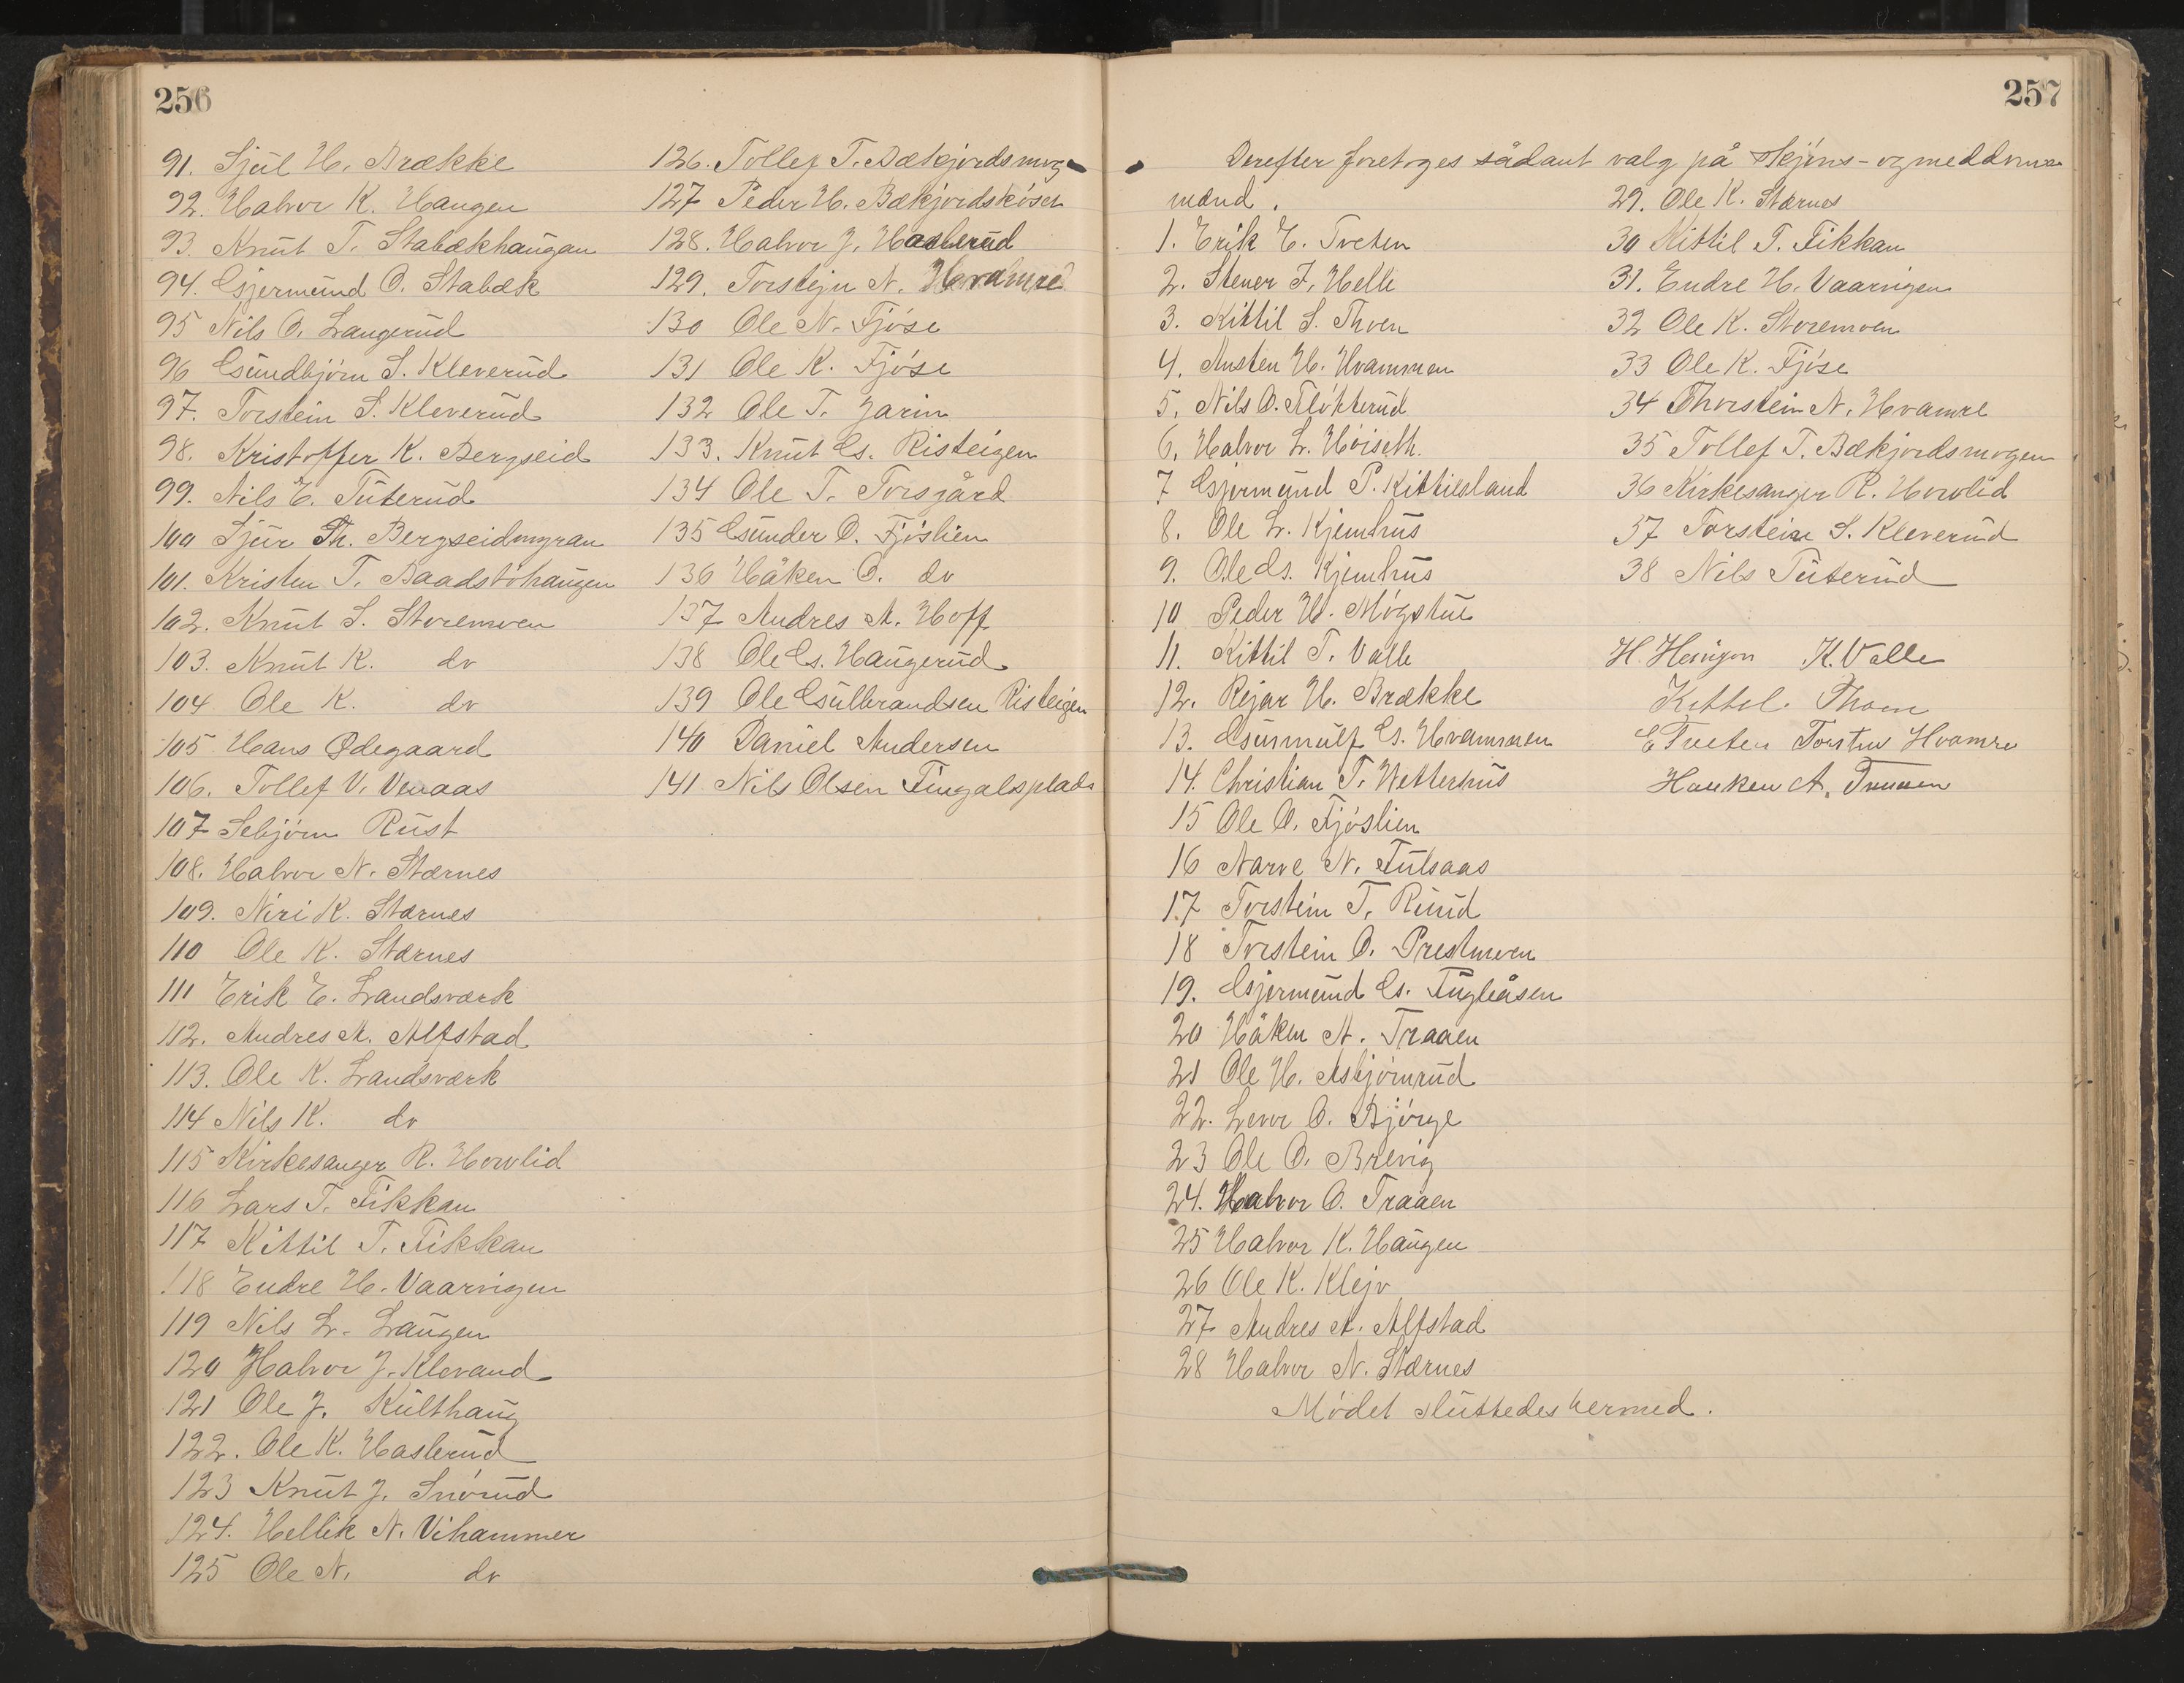 256
91. Sjul H. Brække
92. Halvor K. Haugen
93. Knut T. Stabækhaugan
94. Gjermund O. Stabæk
95 Nils O. Langerud
96 Gundbjörn S. Kleverud
97. Torstein S. Kleverud
98. Kristoffer K. Bergseid
99. Nils E. Tuterud
100 Sjur Th. Bergseidmyran
101. Kristen T. Baadstöhaugen
102. Knut S. Storemoen
103. Knut K. do
104 Ole K. do
105 Hans Ødegaard
106. Tollef V. Venaas
107 Sebjörn Rust
108. Halvor N. Stærnes
109. Niri K. Stærnes
110 Ole K. Stærnes
111 Erik E. Landsværk
112. Andres A. Alfstad
113. Ole K. Landsværk
114 Nils K. do
115 Kirkesanger R. Hovlid
116 Lars T. Fikkan
117 Kittil T. Fikkan
118 Endre H. Vaarvigen
119 Nils L. Laugen
120 Halvor J. Klevand
121 Ole J. Kulthaug
122. Ole K. Haslerud
123 Knut J. Snörud
124. Hellik N. Vihammer
125 Ole N. do
126. Tollef T. Bækjordsmog
127 Peder H. Bækjordskåsen
128. Halvor J. Haslerud
129. Torstejn N. Hvamre
130 Ole N. Fjöse
131 Ole K. Fjöse
132 Ole T. Jarin
133. Knut G. Risteigen
134 Ole T. Torsgård
135 Gunder O. Fjöslien
136 Håken O. do
137 Andres A. Hoff
138 Ole G. Haugerud
139 Ole Gulbrandsen Risteigen
140 Daniel Andersen
141 Nils Olsen Fingalsplads
257
Derefter foretoges sådant valg på skjöns- og meddoms
mænd.
1. Erik E. Tveten
2. Stener F. Helle
3. Kittil S. Thoen
4. Austen H. Hvammen
5. Nils O. Fløkterud
6. Halvor L. Höiseth.
7 Gjermund P. Kittilsland
8. Ole L. Kjemhus
9. Ole G. Kjemhus
10 Peder H. Mögstue
11. Kittil T. Valle
12. Rejar H. Brække
13. Gunnulf G. Hvammen
14. Christian T. Wetterhus
15 Ole O. Fjöslien
16 Narve N. Fulsaas
17 Torstein T. Ruud
18 Torstein O. Prestmoen
19. Gjermund G. Fugleåsen
20 Håken A. Traaen
21 Ole H. Asbjörnrud
22. Levor O. Bjørge
23 Ole O. Brevig
24. Halvor O. Traaen
25 Halvor K. Haugen
26 Ole K. Klejv
27 Andres A. Alfstad
28 Halvor N. Stærnes
Mödet sluttedes hermed.
29. Ole K. Stærnes
30 Kittil T. Fikkan
31. Endre H. Vaarvigen
32 Ole K. Storemoen
33 Ole K. Fjöse
34 Thorstein N. Hvamre
35 Tollef T. Bækjordsmogen
36 Kirkesanger R. Hovlid
37 Torstein S. Kleverud
38 Nils Tuterud
H. K. Valle
Kittel. Thoen
E Tveten Torsten Hvamre
Haaken A. Traaen